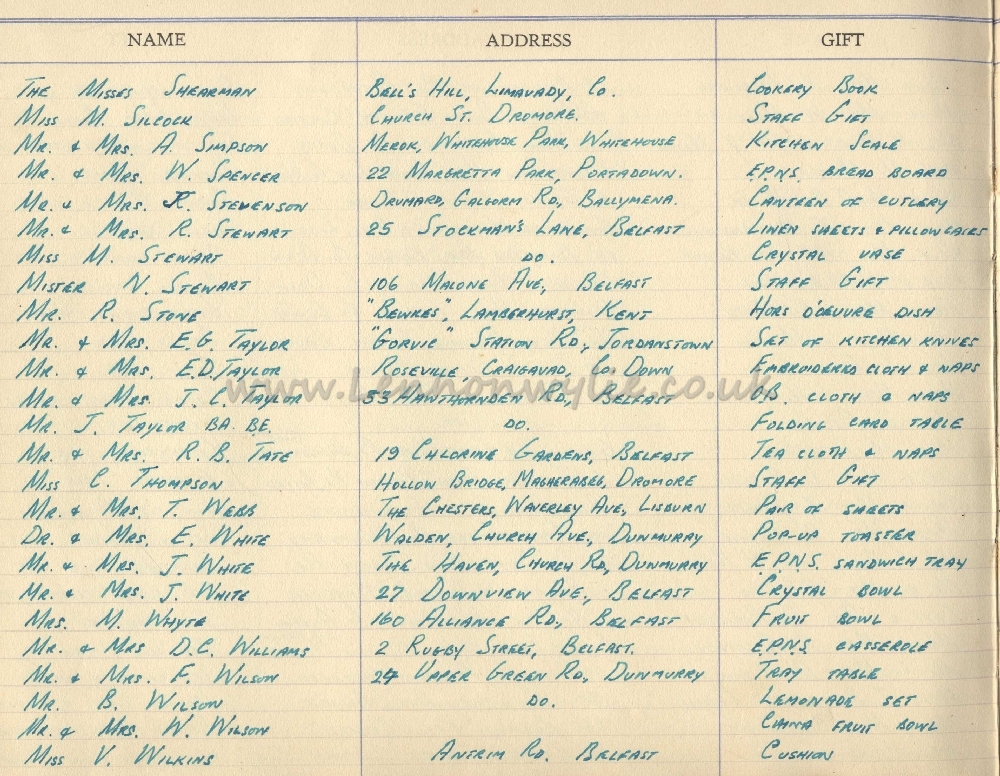 NAME ADDRESS GIFT
The Misses Shearman Bell's Hill, Limavady, Co. Cookery Book
Miss M. Silcock Church St. Dromore. Staff Gift
Mr. & Mrs. A. Simpson Merok, Whitehouse Park, Whitehouse Kitchen Scale
Mr. & Mrs. W. Spencer 22 Margretta Park, Portadown. E.P.N.S. bread board
Mr. & Mrs. R. Stevenson Drumard, Galgorm Rd., Ballymena. Canteen of cutlery
Mr. & Mrs. R. Stewart 25 Stockman's Lane, Belfast Linen sheets & pillowcases
Miss M. Stewart do. Crystal vase
Mister N. Stewart 106 Malone Ave., Belfast Staff Gift
Mr. R. Stone "Bewkes", Lamberhurst, Kent Hors d'oeuvre dish
Mr. & Mrs. E.G. Taylor "Gorvic" Station Rd., Jordanstown Set of kitchen knives
Mr. & Mrs. E.D. Taylor Roseville Craigavad, Co. Down Embroidered cloth & naps
www.Lennonwylie.co.uk
Mr. & Mrs. J. C. Taylor 53 Hawthornden Rd., Belfast cloth & naps
Mr. J. Taylor BA. BE. do. Folding card table
Mr. & Mrs. R. B. Tate 19 Chlorine Gardens, Belfast Tea cloth & naps
Miss C. Thompson Hollow Bridge, Magherabeg, Dromore Staff Gift
Mr. & Mrs. T. Webb The Chesters, Waverley Ave., Lisburn Pair of sheets
Dr. & Mrs. E. White Walden, Church Ave., Dunmurry Pop-up toaster
Mr. & Mrs. J. White The Haven, Church Rd., Dunmurry E.P.N.S. sandwich tray
Mr. & Mrs. J. White 27 Downview Ave., Belfast Crystal bowl
Mrs. M. Whyte 160 Alliance Rd., Belfast Fruit bowl
Mr. & Mrs D.C. Williams 2 Rugby Street, Belfast. E.P.N.S. casserole
Mr. & Mrs. F. Wilson 24 Upper Green Rd., Dunmurry Tray table
Mr. B. Wilson do. Lemonade set
Mr. & Mrs. W. Wilson China fruit bowl
Miss V. Wilkins Antrim Rd. Belfast Cushion